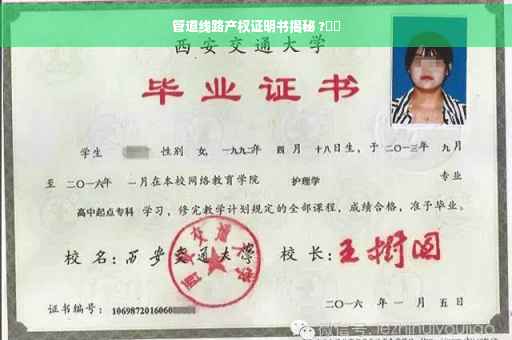 管道线路产权证明书揭秘 ?
西安交通大学
毕业证书
学生 性别 女,一九九二年 四 月 十八日生,于二〇一三年 九月
至 二〇一六年 一月在本校网络教育学院 护理学 专业
高中起点专科 学习,修完教学计划规定的全部课程,成绩合格,准予毕业。
校 名:西安交通大学 校 长:王树国
证书编号: 1069872016060
二〇一六 年 一 月 五 日
微信号: jezhihuiyoujiao